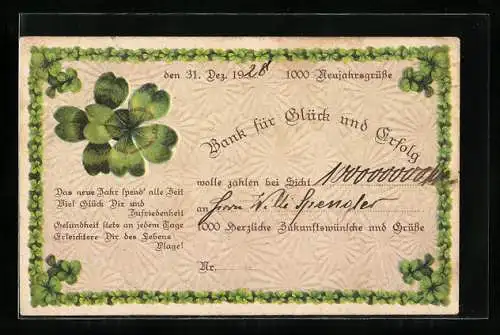 den 31. Dez. 1928 1000 Neujahrsgrüße
Bank für Glück und Erfolg
wolle zahlen bei Sicht
an Herrn Willi Spengler
1000 Herzliche Zukunftswünsche und Grüße
Nr.
Das neue Jahr spend' alle Zeit
Viel Glück Dir und
Zufriedenheit
Gesundheit stets an jedem Tage
Erleichtere Dir des Lebens
Plage!